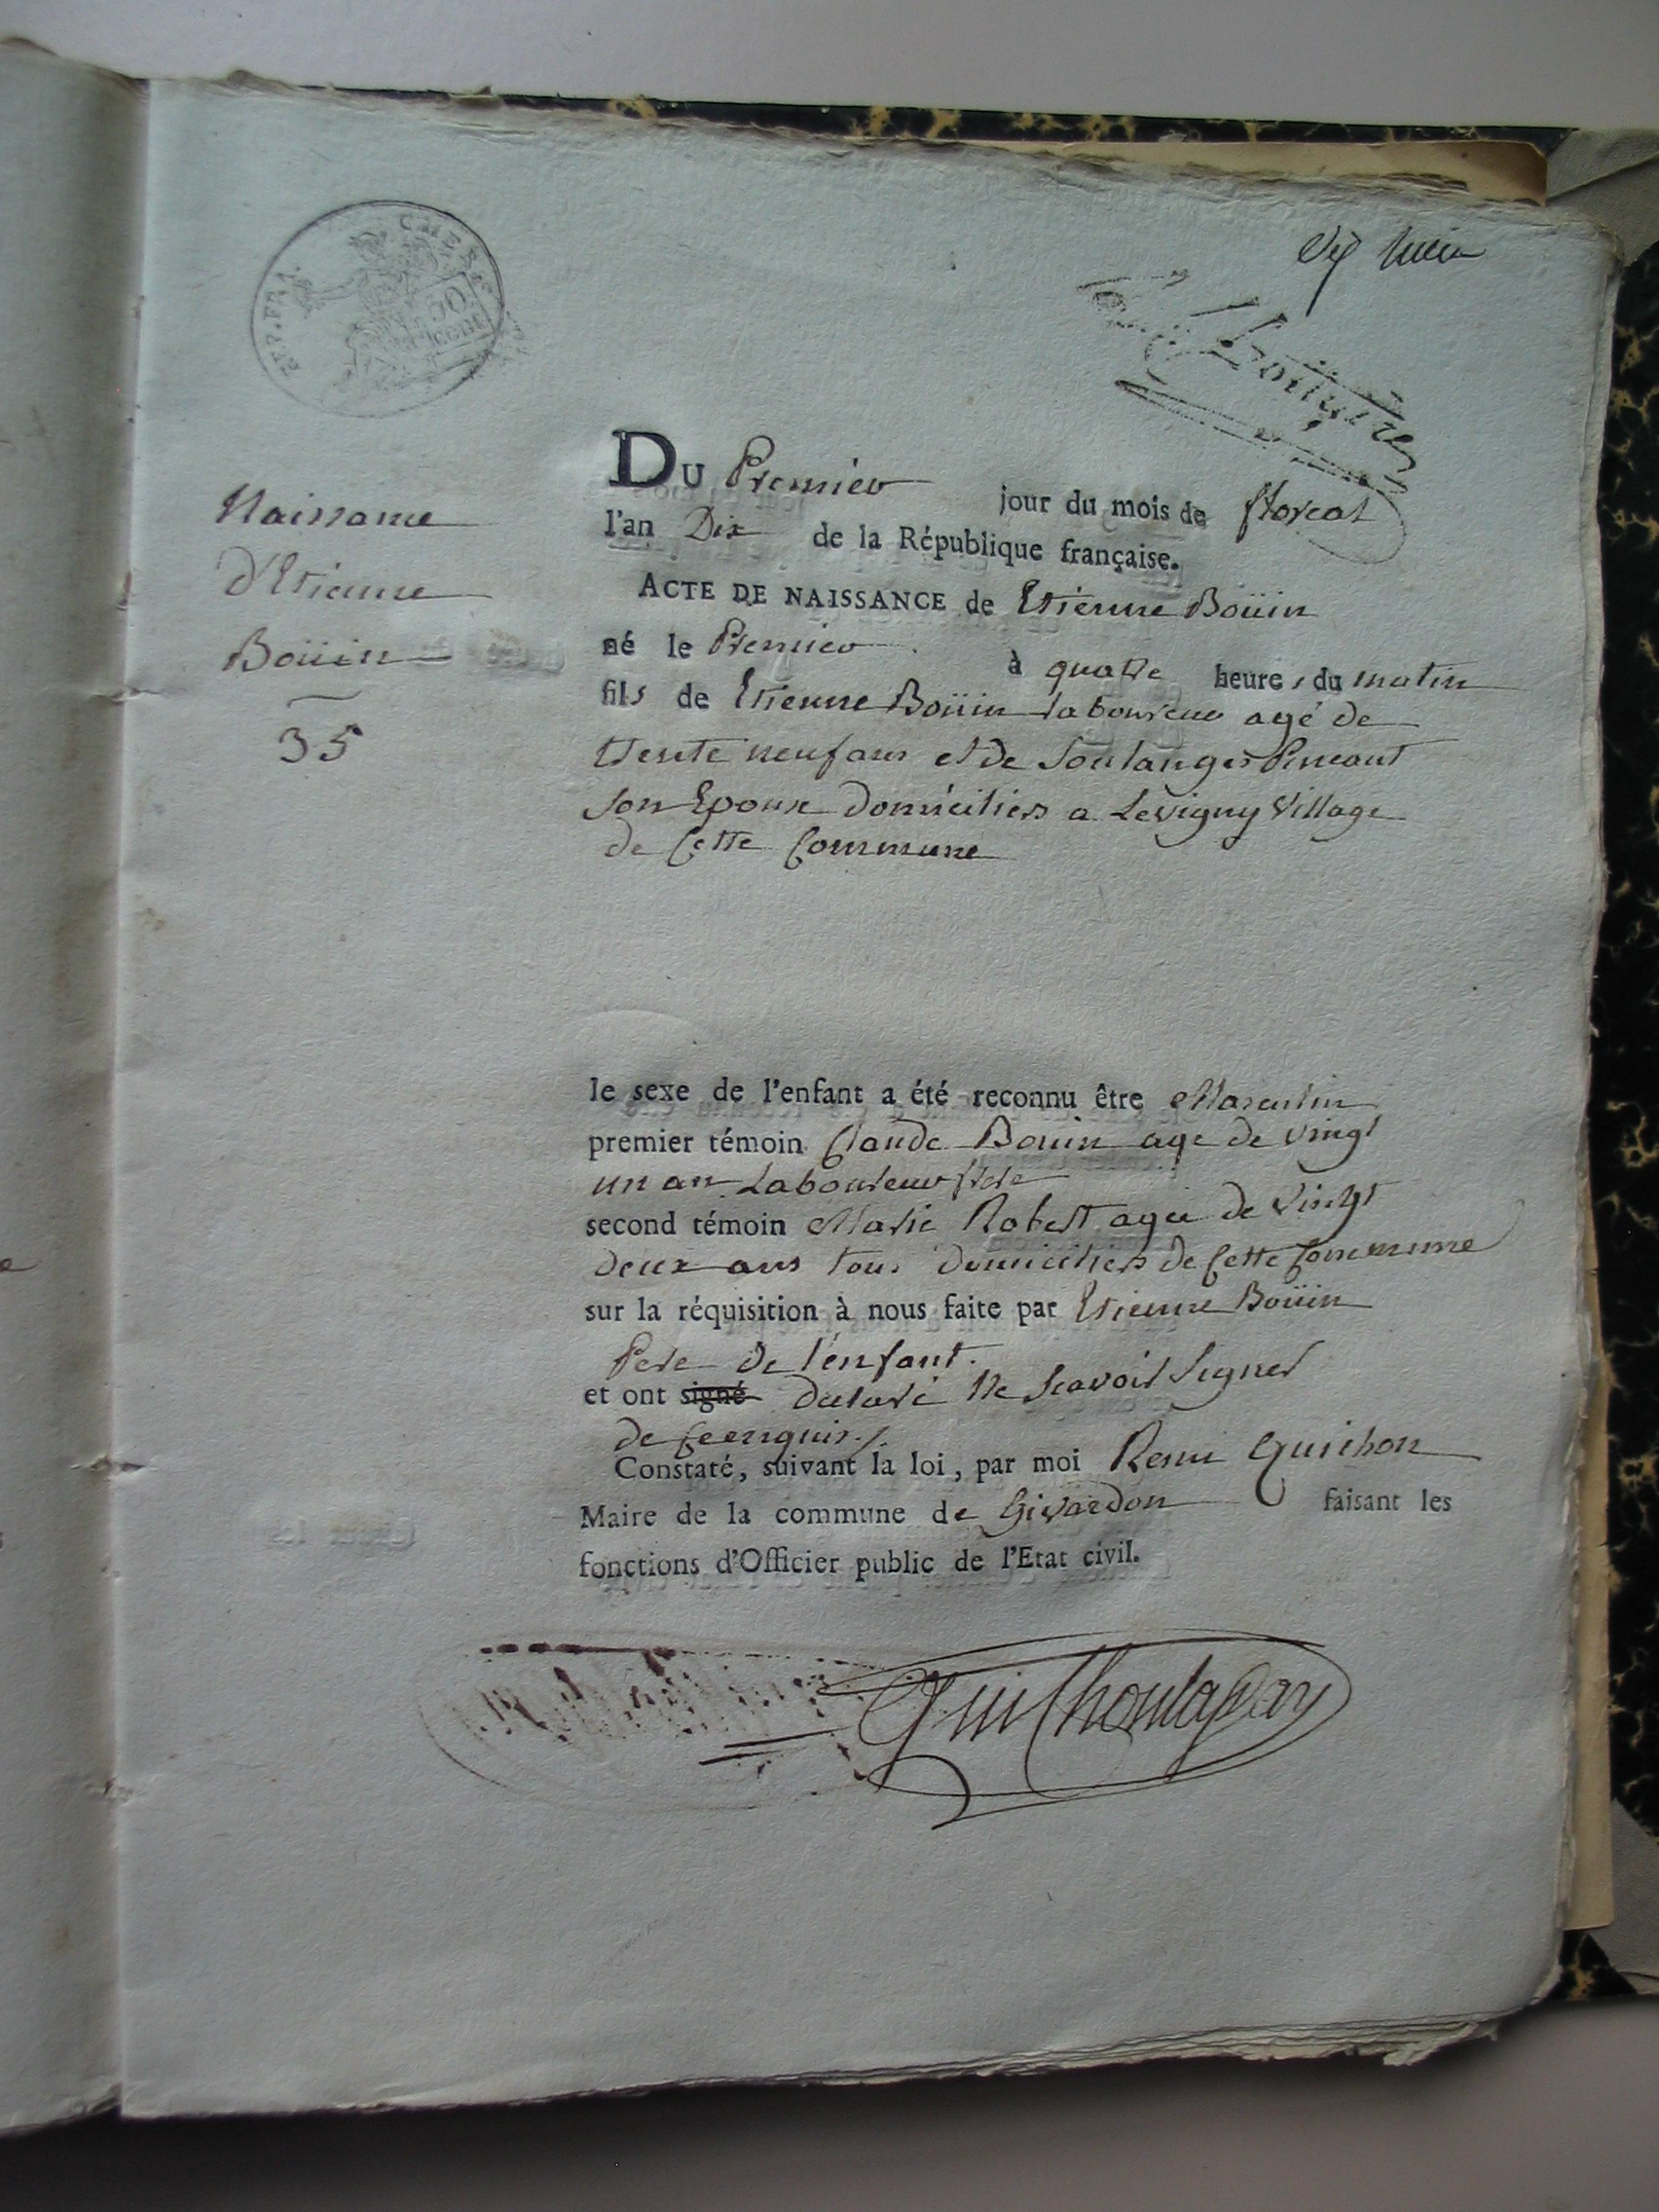 Naissance
d'Etienne
Boüin
35
CHER
50
REP. FRA.
DU Premier jour du mois de floreal
l'an Dix de la République française.
ACTE DE NAISSANCE de Etienne Boüin
né le Premier à quatre heures du matin
fils de Etienne Boüin Laboureur agé de
trente neuf ans et de Soulanges Pineaut
son Epouse Domiciliés a Levigny Village
de Cette Commune
le sexe de l'enfant a été reconnu être Masculin
premier témoin Claude Bouin age de vingt
un an Laboureur
second témoin Marie Robert agée de vingt
deux ans tous Domiciliés de Cette Commune
sur la réquisition à nous faite par Etienne Boüin
Pere de l'enfant.
et ont signé declaré Ne Scavoir Signer
de ce enquis
Constaté, suivant la loi, par moi Remi Guichon
Maire de la commune de Givardon faisant les
fonctions d'Officier public de l'Etat civil.